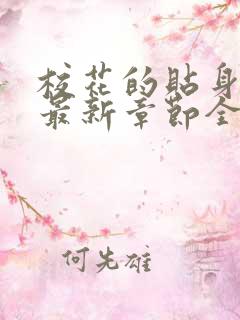 校花的贴身
最新章节全
何先雄